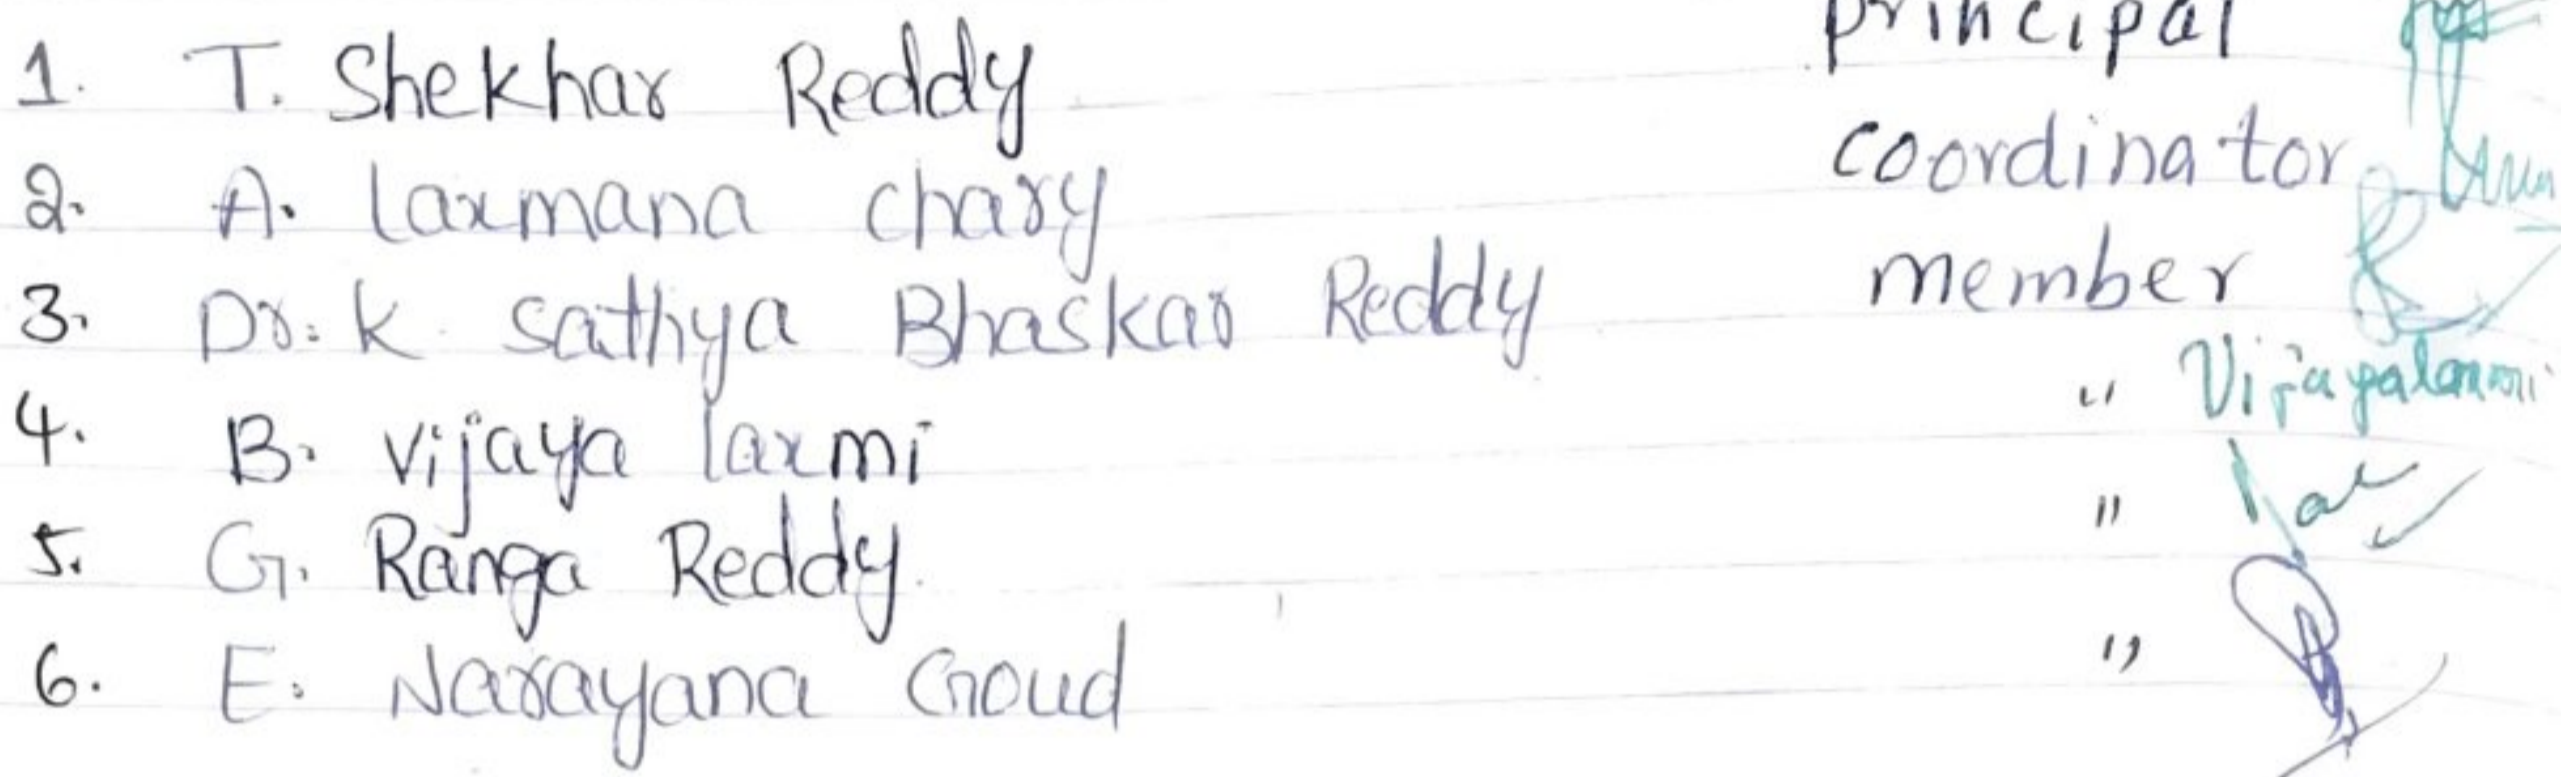 1. T. Shekhar Reddy principal
2. A. laxmana chary coordinator
3. Dr. K. Sathya Bhaskar Reddy member
4. B. vijaya laxmi " Vijayalaxmi
5. G. Ranga Reddy. "
6. E. Narayana Goud "